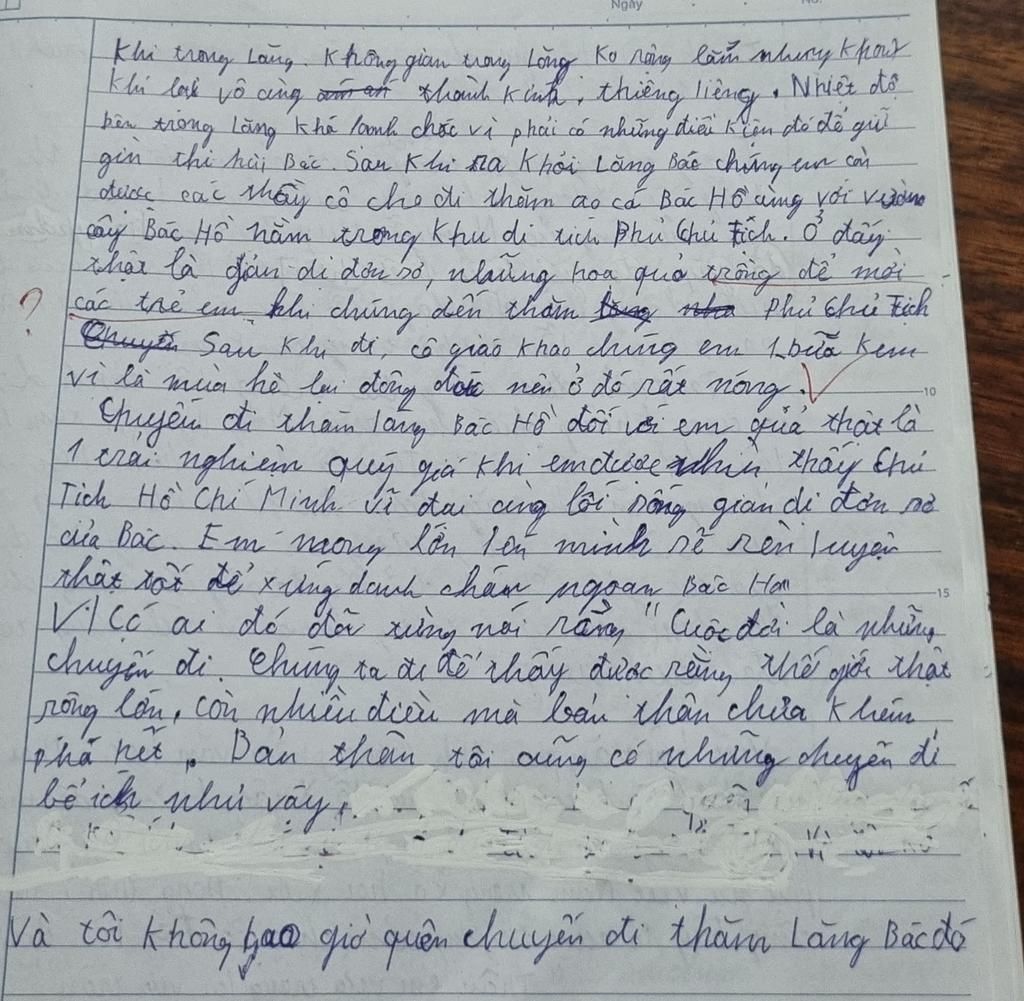 Ngày
khi trong Lăng. Không gian trong Lăng ko rộng lắm nhưng không
khí lại vô cùng thành kính, thiêng liêng. Nhiệt độ
bên trong Lăng khá lạnh chắc vì phải có những điều kiện đó để giữ
gìn thi hài Bác. Sau khi ra khỏi Lăng Bác chúng em còn
được các thầy cô cho đi thăm ao cá Bác Hồ cùng với vườn
cây Bác Hồ nằm trong khu di tích Phủ Chủ Tịch. Ở đấy
thật là giản dị đơn sơ, những hoa quả trồng để mời
? các trẻ em khi chúng đến thăm Phủ Chủ Tịch
Sau khi đi, cô giáo khao chúng em 1 bữa kem
vì là mùa hè lại đông đúc nên ở đó rất nóng.
10
Chuyến đi thăm lăng Bác Hồ đối với em quả thật là
1 trải nghiệm quý giá khi em được nhìn thấy Chủ
Tịch Hồ Chí Minh vĩ đại cùng lối sống giản dị đơn sơ
của Bác. Em mong lớn lên mình sẽ rèn luyện
thật tốt để xứng danh cháu ngoan Bác Hồ
15
V| Có ai đó đã từng nói rằng "Cuộc đời là những
chuyến đi. Chúng ta đi để thấy được rằng thế giới thật
rộng lớn, còn nhiều điều mà bản thân chưa khám
phá hết. Bản thân tôi cũng có những chuyến đi
bổ ích như vậy.
Và tôi không bao giờ quên chuyến đi thăm Lăng Bác đó